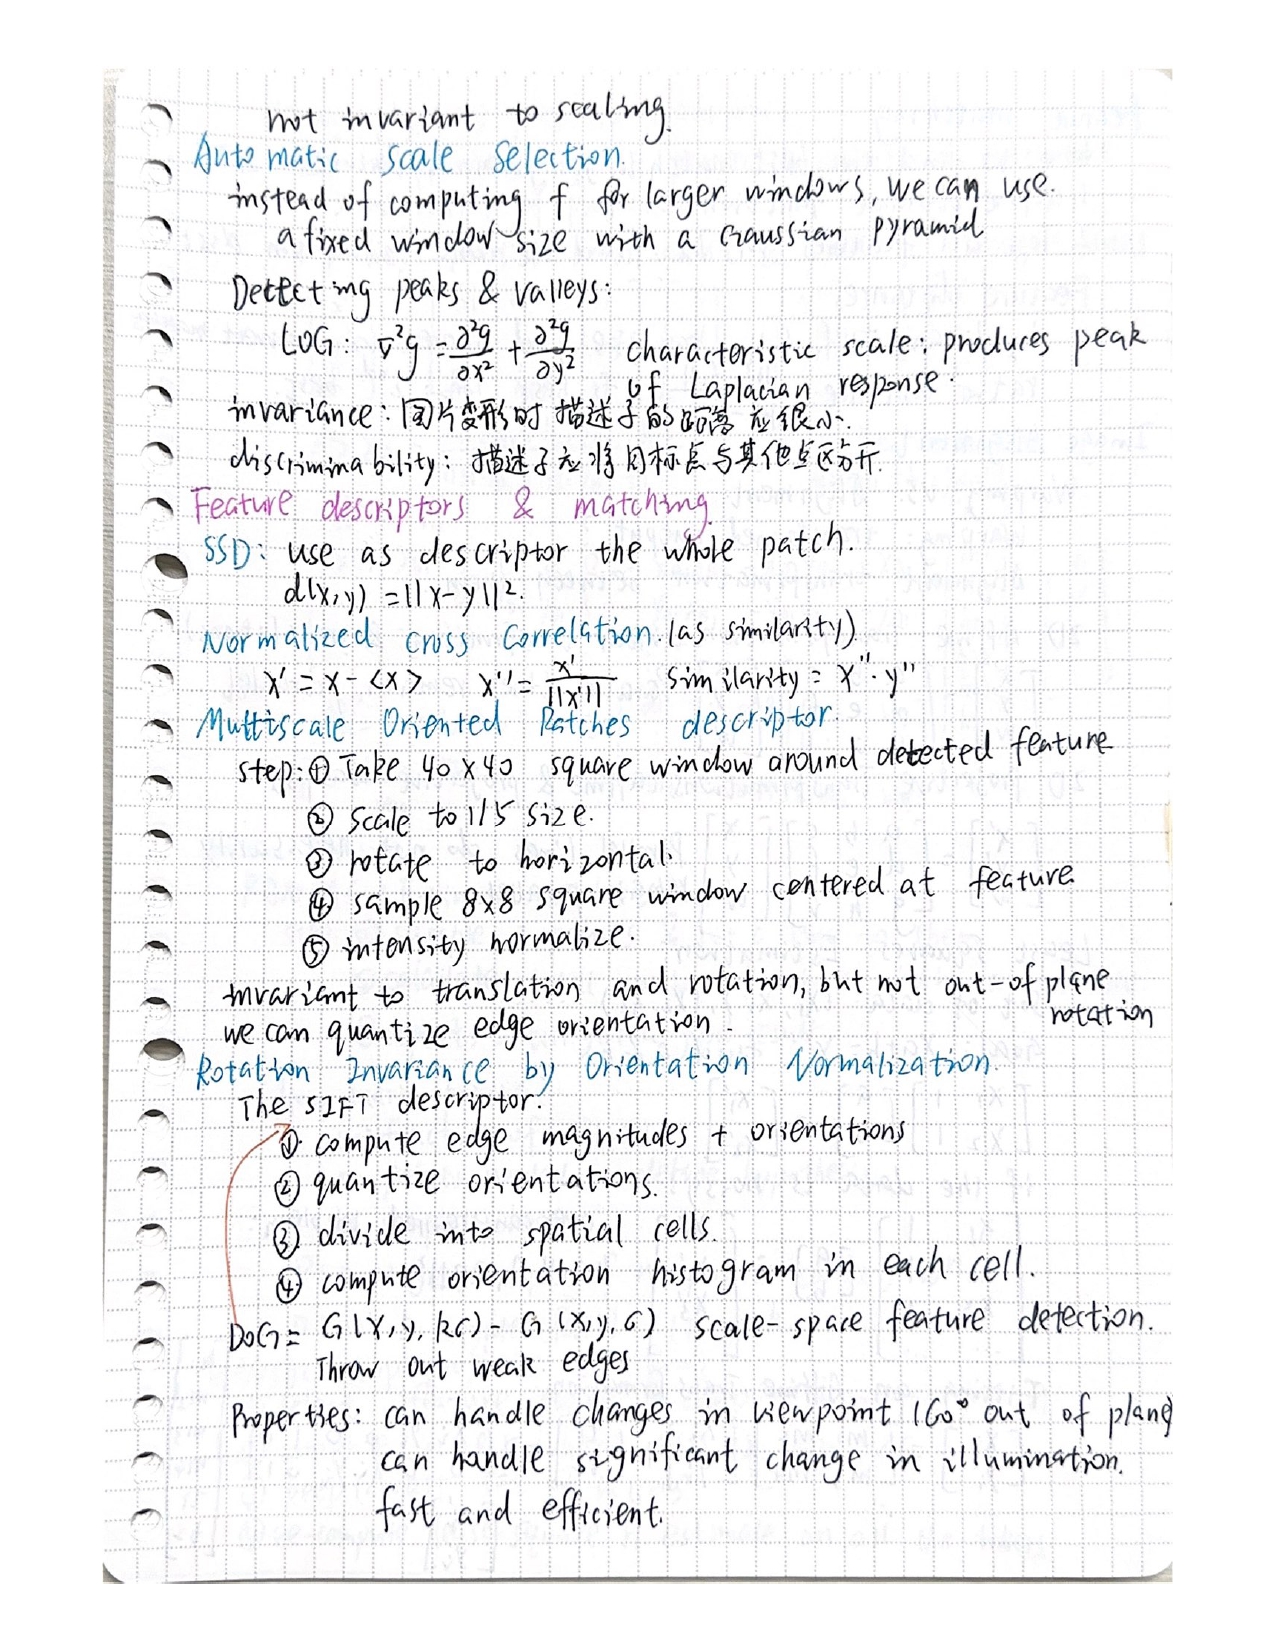 not invariant to scaling.
Automatic scale selection.
instead of computing f for larger windows, we can use.
a fixed window size with a Gaussian pyramid
Detecting peaks & valleys:
LOG: ∇²g = ∂²g/∂x² + ∂²g/∂y² characteristic scale: produces peak
of Laplacian response.
invariance: 图片变形时描述子的距离应很小.
discriminability: 描述子应将目标点与其他点区分开.
Feature descriptors & matching.
SSD: use as descriptor the whole patch.
d(x,y) = ||x-y||².
Normalized cross Correlation. (as similarity)
x' = x - <x> x'' = x'/||x'|| similarity = x''·y''
Multiscale Oriented Patches descriptor.
step: ① Take 40×40 square window around detected feature
② scale to 1/5 size.
③ rotate to horizontal.
④ sample 8×8 square window centered at feature
⑤ intensity normalize.
invariant to translation and rotation, but not out-of plane
rotation
we can quantize edge orientation.
Rotation Invariance by Orientation Normalization.
The SIFT descriptor:
① compute edge magnitudes + orientations
② quantize orientations.
③ divide into spatial cells.
④ compute orientation histogram in each cell.
DoG = G(x,y,kσ) - G(x,y,σ) scale-space feature detection.
Throw out weak edges
Properties: can handle changes in viewpoint (60° out of plane)
can handle significant change in illumination.
fast and efficient.